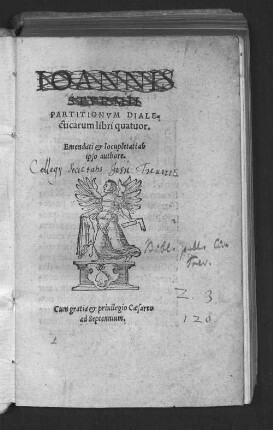 IOANNIS
STVRMII
PARTITIONVM DIALE-
cticarum libri quatuor.
Emendati & locupletati ab
ipso authore.
Collegij Societatis Jesu Treveris
Bibl. publ. Civ.
Trev.
Z. 3
120
Cum gratia & priuilegio Cæsareo
ad Septennium.